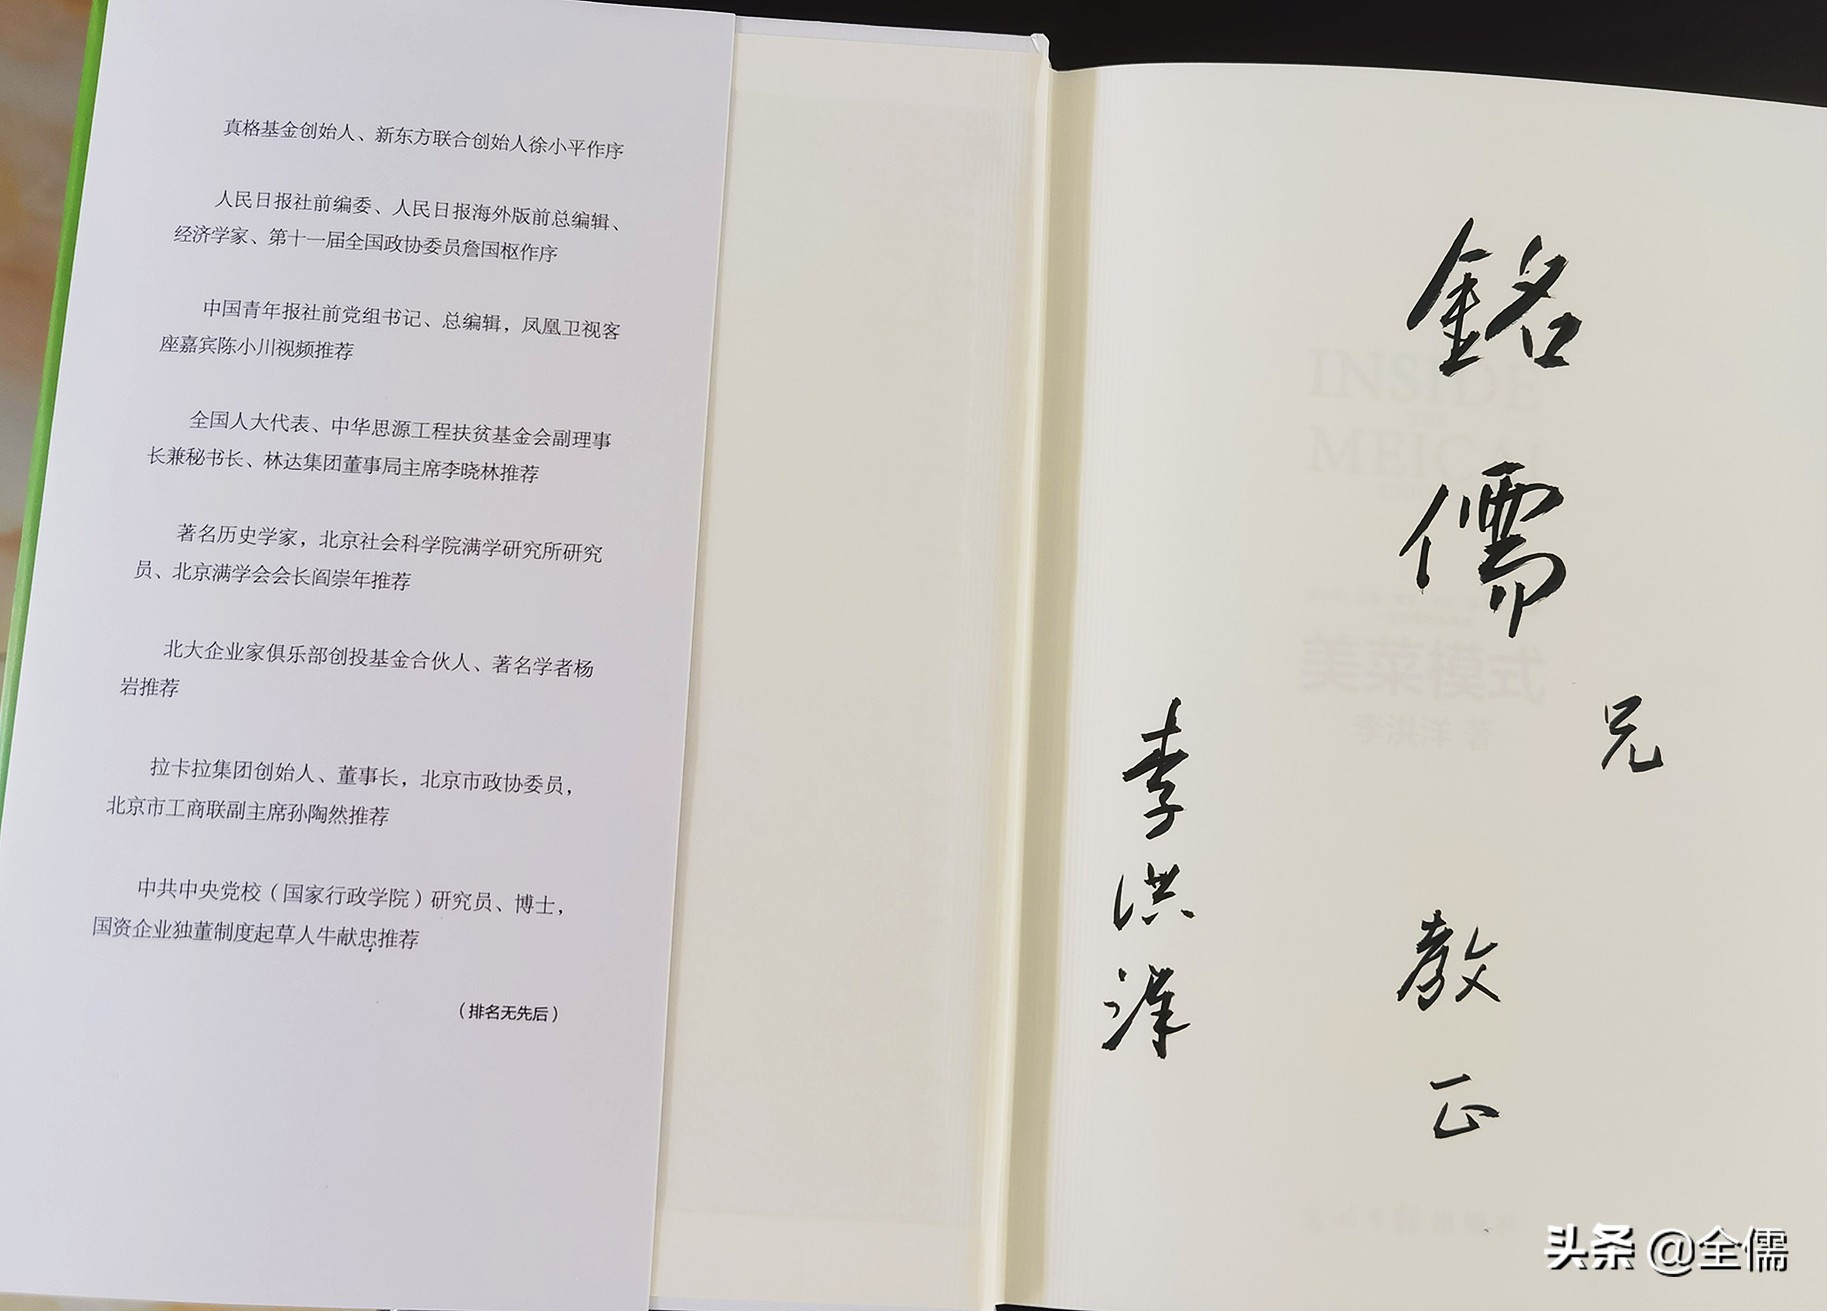 真格基金创始人、新东方联合创始人徐小平作序
人民日报社前编委、人民日报海外版前总编辑、
经济学家、第十一届全国政协委员詹国枢作序
中国青年报社前党组书记、总编辑，凤凰卫视客
座嘉宾陈小川视频推荐
全国人大代表、中华思源工程扶贫基金会副理事
长兼秘书长、林达集团董事局主席李晓林推荐
著名历史学家，北京社会科学院满学研究所研究
员、北京满学会会长阎崇年推荐
北大企业家俱乐部创投基金合伙人、著名学者杨
岩推荐
拉卡拉集团创始人、董事长，北京市政协委员，
北京市工商联副主席孙陶然推荐
中共中央党校（国家行政学院）研究员、博士，
国资企业独董制度起草人牛献忠推荐
（排名无先后）
銘儒
兄
教正
李洪洋
INSIDE
MEICAI
美菜模式
李洪洋 著
头条 @全儒